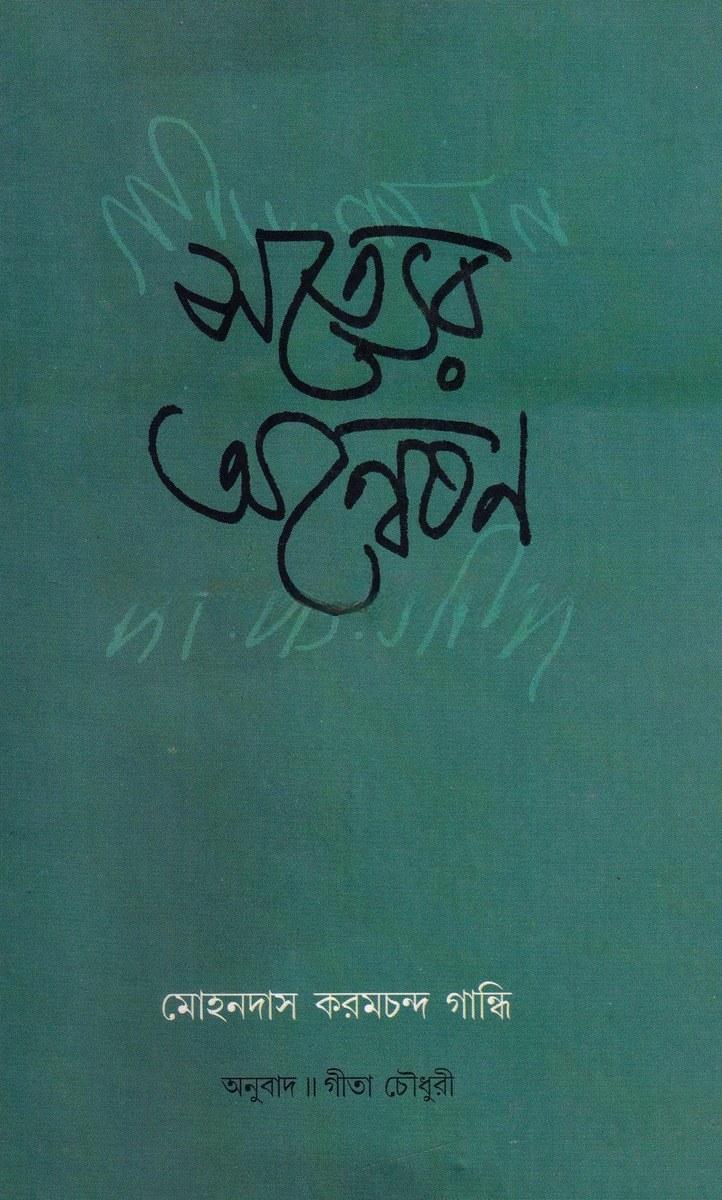 সত্যের
অন্বেষণ
মোহনদাস করমচন্দ গান্ধি
অনুবাদ ॥ গীতা চৌধুরী